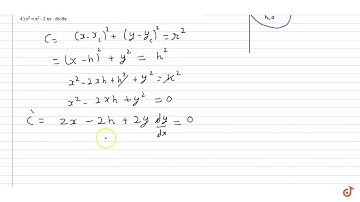 4) y² = x² - 2 xy dy/dx
h,0
C = (x - x꜀)² + (y - y꜀)² = r²
= (x - h)² + y² = h²
x² - 2xh + h² + y² = h²
x² - 2xh + y² = 0
C' = 2x - 2h + 2y dy/dx = 0